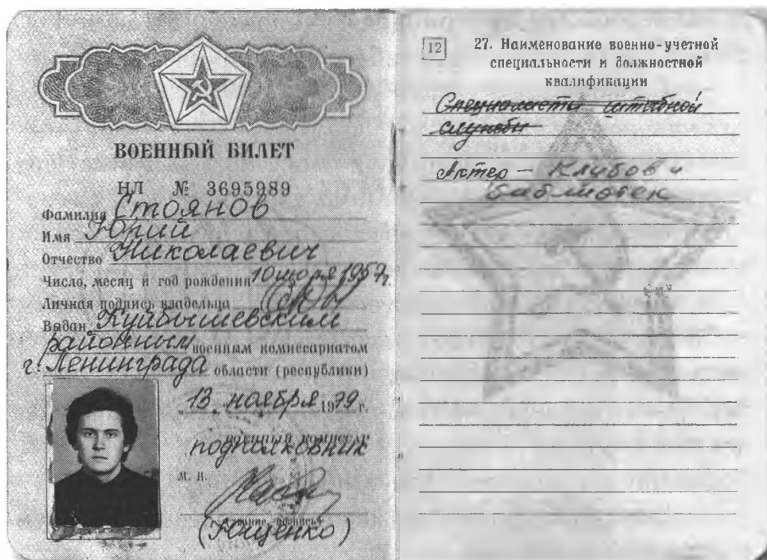 ВОЕННЫЙ БИЛЕТ
НЛ № 3695989
Фамилия Стоянов
Имя Юрий
Отчество Николаевич
Число, месяц и год рождения 10 июля 1957 г.
Личная подпись владельца
Выдан Куйбышевским
районным военным комиссариатом
г. Ленинграда области (республики)
„13„ ноября 1979 г.
военный комиссар
подполковник
М. П.
(Ющенко)
12
27. Наименование военно-учетной
специальности и должностной
квалификации
Специалисты штабной
службы
Актер — Клубов и
библиотек